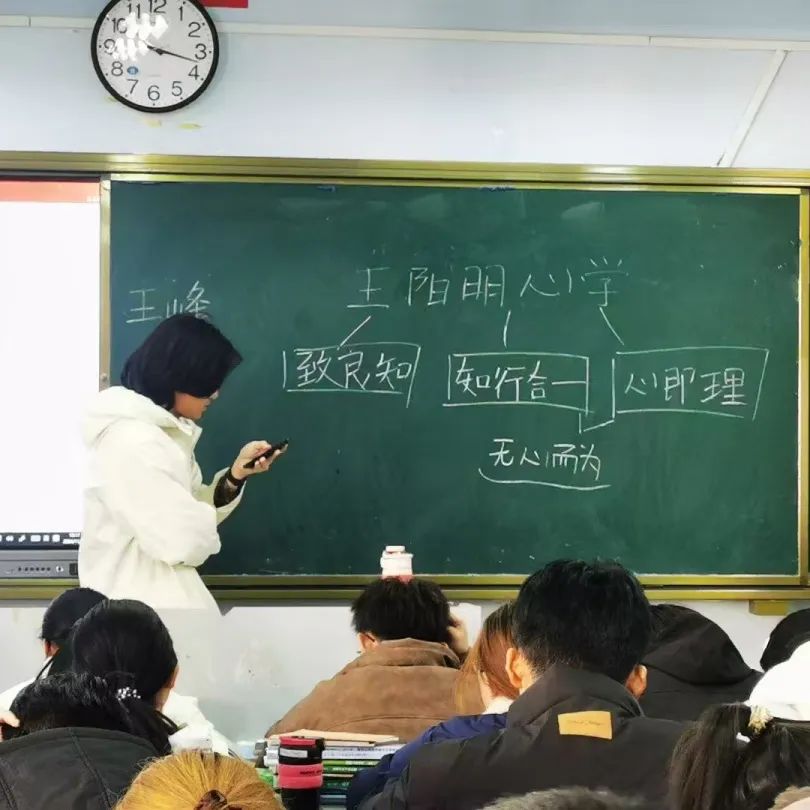 12
1
2
3
4
5
6
7
8
9
10
11
王峰
王阳明心学
致良知
知行合一
心即理
无心而为